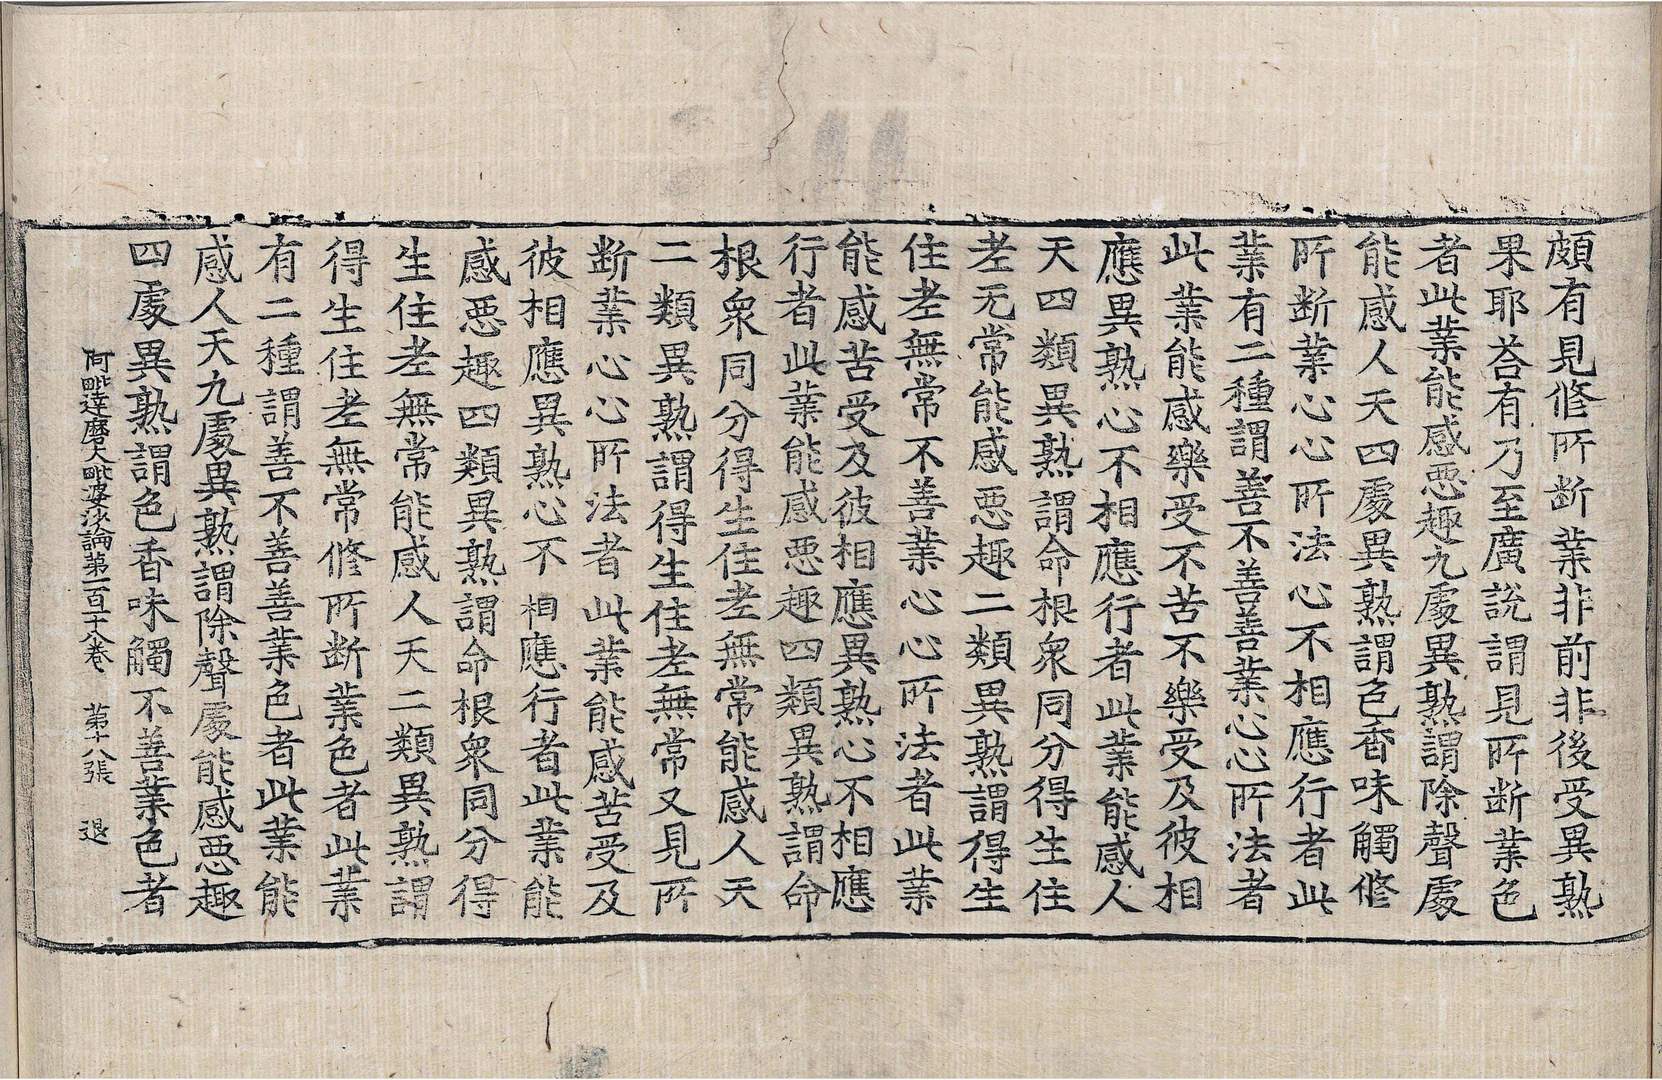 頗有見修所断業非前非後受異熟
果耶荅有乃至廣說謂見所断業色
者此業能感惡趣九處異熟謂除聲處
能感人天四處異熟謂色香味觸修
所断業心心所法心不相應行者此
業有二種謂善不善善業心心所法者
此業能感樂受不苦不樂受及彼相
應異熟心不相應行者此業能感人
天四類異熟謂命根眾同分得生住
老无常能感惡趣二類異熟謂得生
住老無常不善業心心所法者此業
能感苦受及彼相應異熟心不相應
行者此業能感惡趣四類異熟謂命
根眾同分得生住老無常能感人天
二類異熟謂得生住老無常又見所
断業心心所法者此業能感苦受及
彼相應異熟心不相應行者此業能
感惡趣四類異熟謂命根眾同分得
生住老無常能感人天二類異熟謂
得生住老無常修所断業色者此業
有二種謂善不善善業色者此業能
感人天九處異熟謂除聲處能感惡趣
四處異熟謂色香味觸不善業色者
阿毗達磨大毗婆沙論第一百十八卷 第十八張 退